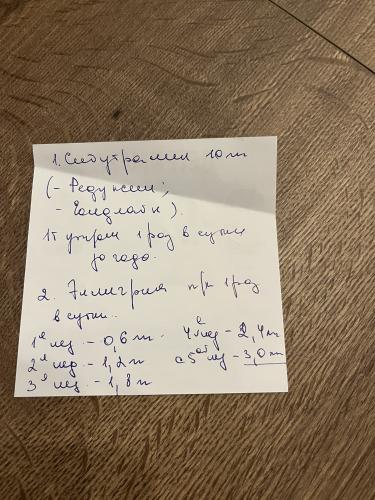 1. Сибутрамин 10 m
(- Редуксин;
- Голдлайн).
1т утром 1 раз в сутки
до года.
2. Энлигрия п/к 1 раз
в сутки.
1я нед. - 0,6 m.
2я нед. - 1,2 m
3я нед. - 1,8 m
4я нед - 2,4 m
с 5ой нед - 3,0 m